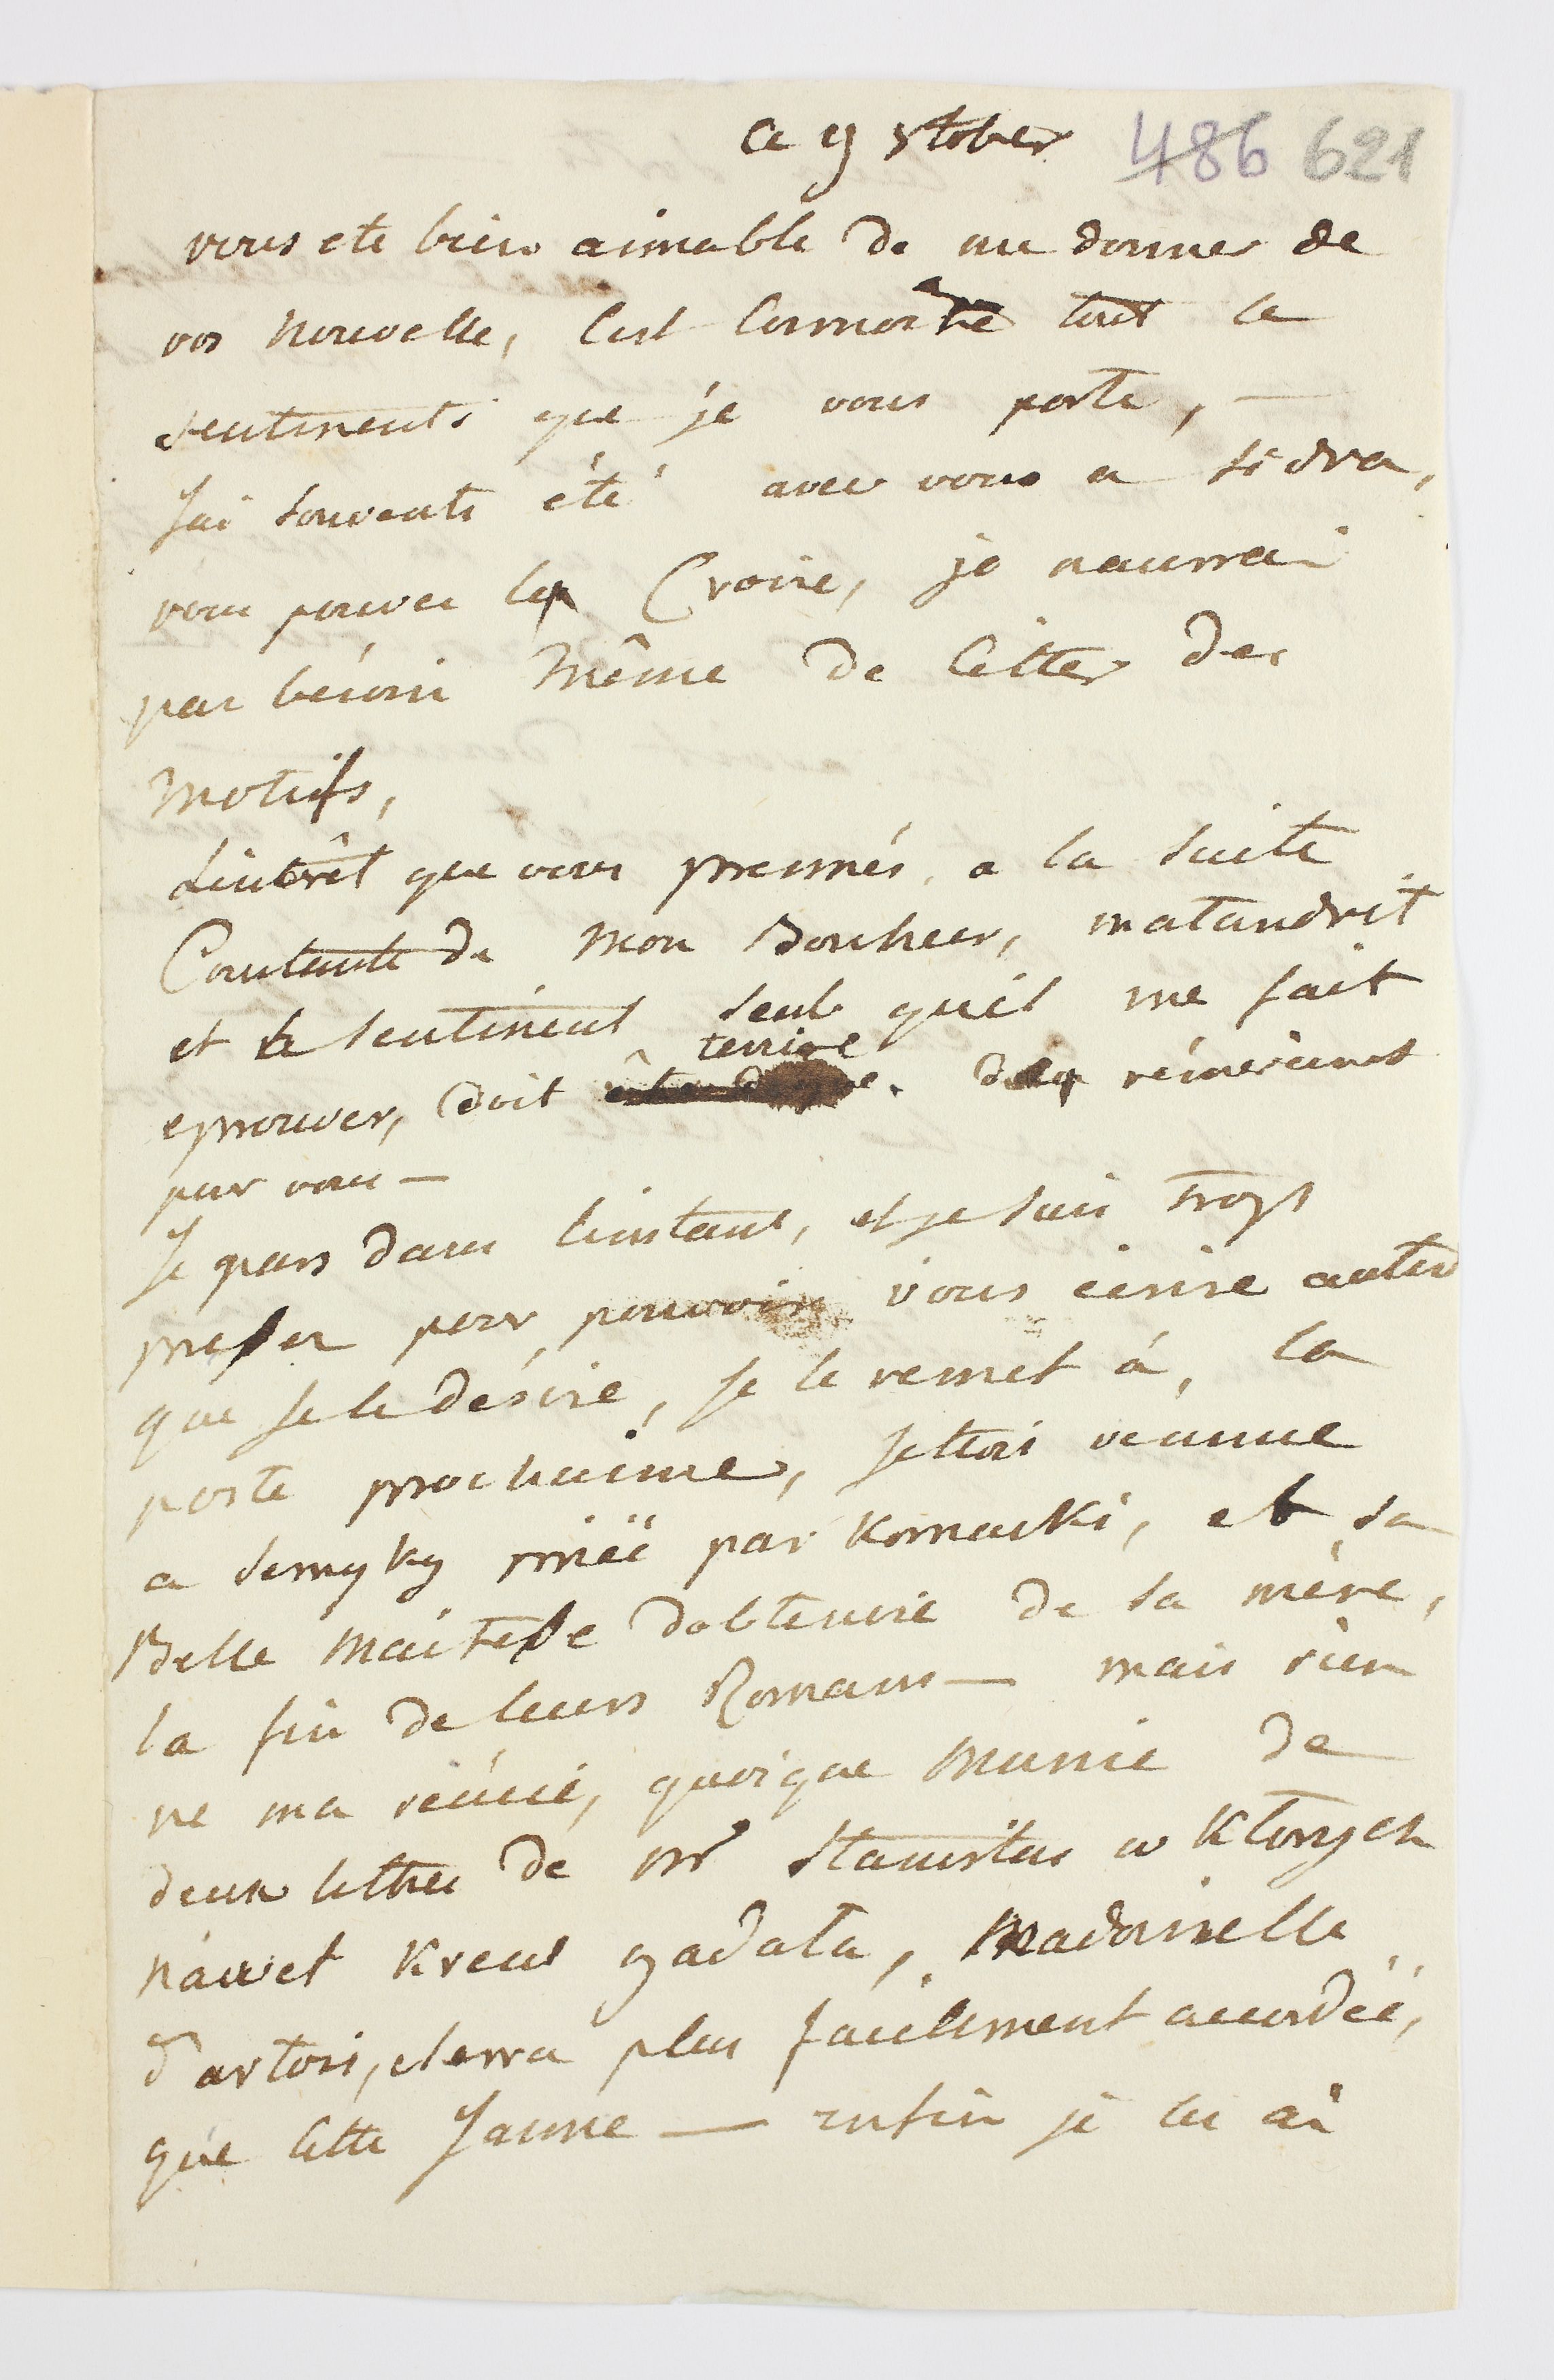 Ce 9 8tober 486 621
vous ete bien aimable de me donner de
vos nouvelle, Cest Connoitre tout le
sentiments que je vous porte, —
Jai souvents été avec vous a Sidra,
vous pouvez le Croire, je naurrai
pas bésoin même de Citter des
Motifs,
Lintérêt que vous prennés a la suite
Constente de Mon Bonheur, matandrit
et le sentiment seul quil me fait
eprouver, doit tenire de remerciment
pour vous —
Je pars dans linstant, et je suis trops
presser pour pouvoir vous ecrire auten
que je le désire, je le remet á, la
poste prochaine, jettoi vennue
a par Kornacki, et sa
Belle Maitresse dobtenire de sa mère,
la fin de leurs Romans — mais rien
ne ma réucié, quoique Munie de
deux lettres de Mr Stanislas w Ktorych
nawet Krewl gadata, Madoiselle
d'artois, serra plus facilement accordéé,
que Cette Jeunne — enfin je lai ai